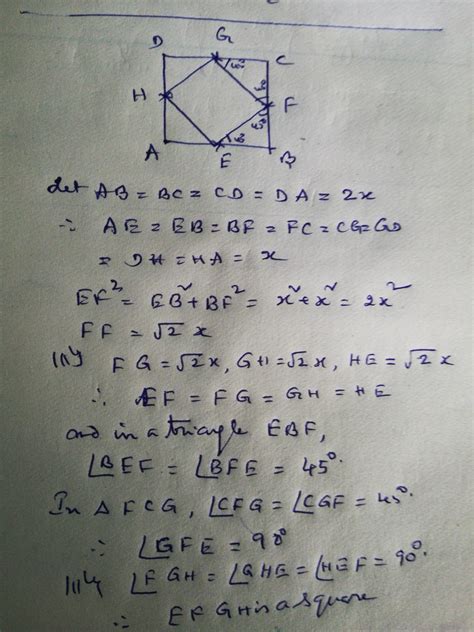 D G C
H F
A E B
Let AB = BC = CD = DA = 2x
∴ AE = EB = BF = FC = CG = GD
= DH = HA = x
EF² = EB² + BF² = x² + x² = 2x²
FF = √2 x
lly FG = √2 x, GH = √2 x, HE = √2 x
∴ EF = FG = GH = HE
and in a triangle EBF,
∠BEF = ∠BFE = 45°.
In Δ FCG, ∠CFG = ∠CGF = 45°.
∴ ∠GFE = 90°
llly ∠FGH = ∠GHE = ∠HEF = 90°.
∴ EFGH is a square